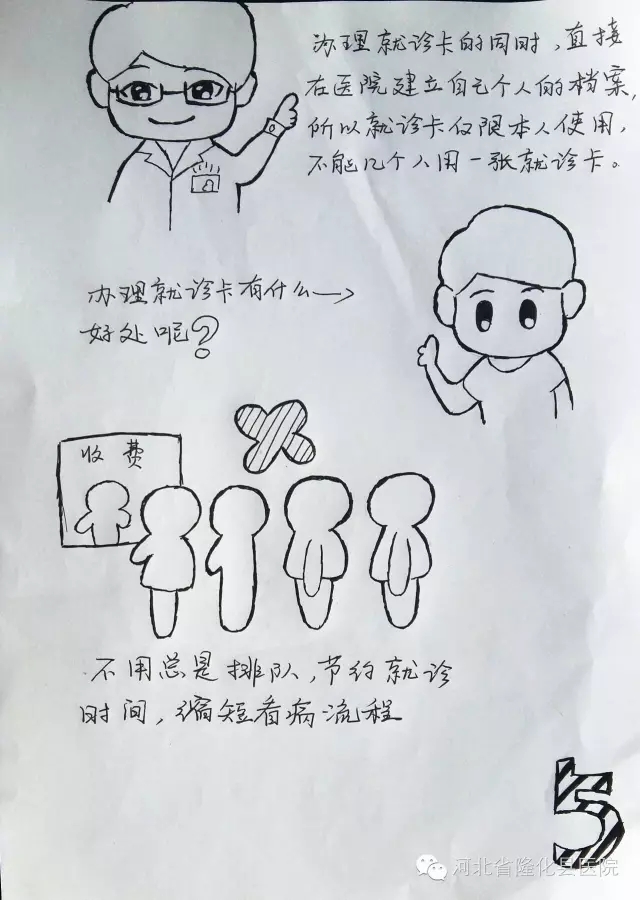 办理就诊卡的同时，直接
在医院建立自己个人的档案，
所以就诊卡仅限本人使用，
不能几个人用一张就诊卡。
办理就诊卡有什么
好处呢？
收费
不用总是排队，节约就诊
时间，缩短看病流程
5
河北省隆化县医院